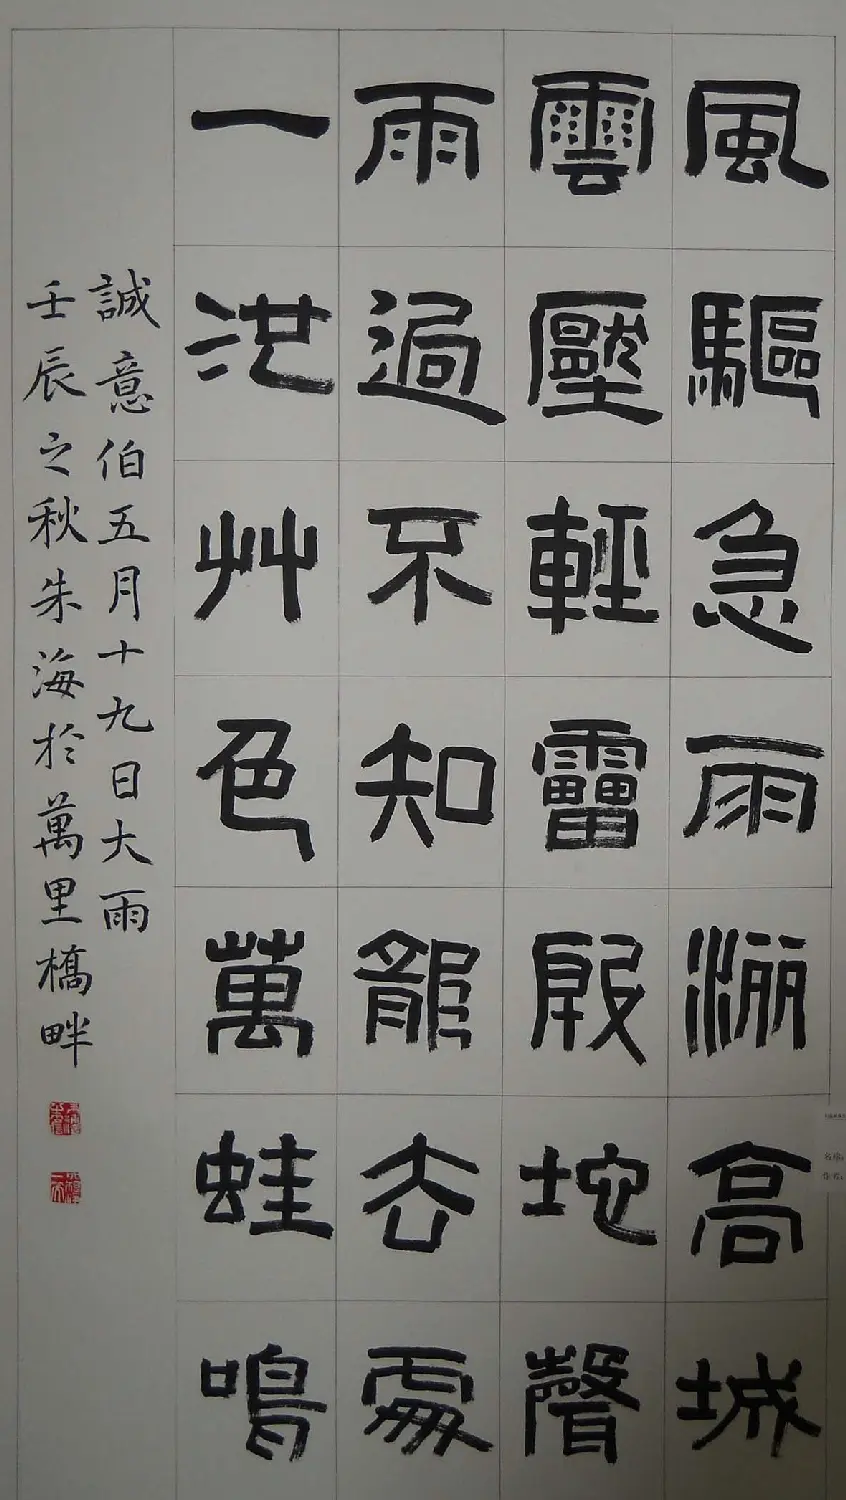 風驅急雨灑高城
雲壓輕雷殷地聲
雨過不知龍去處
一池艸色萬蛙鳴
誠意伯五月十九日大雨
壬辰之秋朱海於萬里橋畔